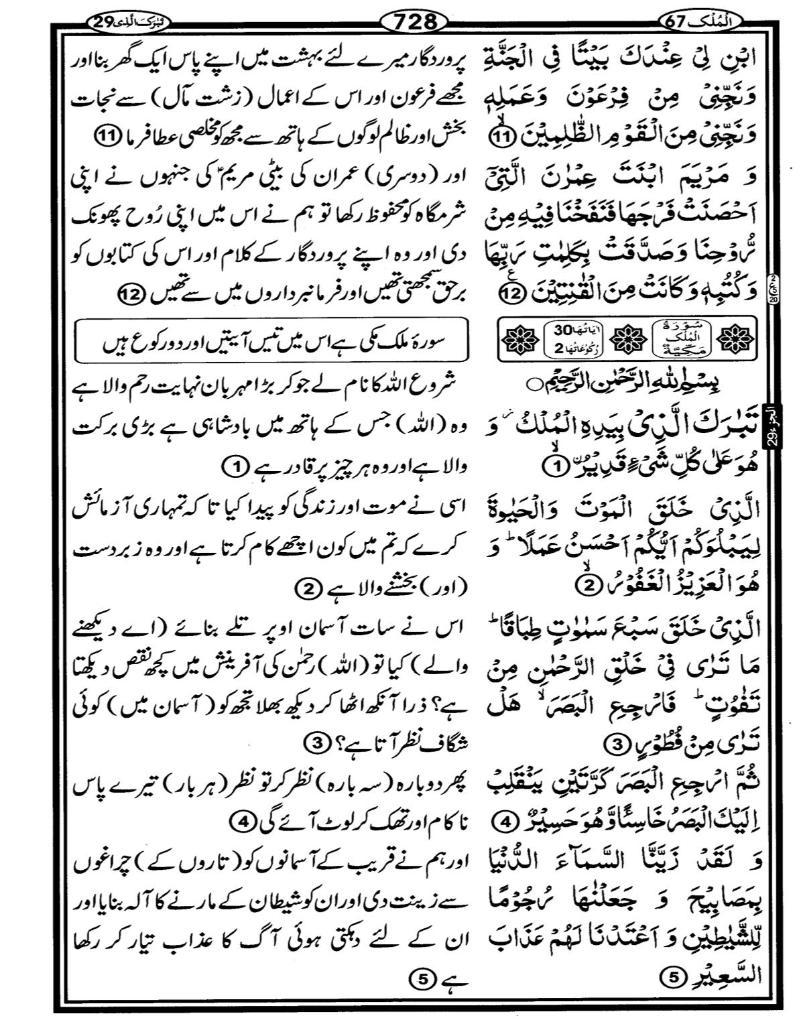 الْمُلْك 67
728
تَبٰرَكَ الَّذِی 29
ابْنِ لِیْ عِنْدَكَ بَیْتًا فِی الْجَنَّةِ
وَنَجِّنِیْ مِنْ فِرْعَوْنَ وَعَمَلِهٖ
وَنَجِّنِیْ مِنَ الْقَوْمِ الظّٰلِمِیْنَ ۙ 11
وَ مَرْیَمَ ابْنَتَ عِمْرٰنَ الَّتِیْۤ
اَحْصَنَتْ فَرْجَهَا فَنَفَخْنَا فِیْهِ مِنْ
رُّوْحِنَا وَصَدَّقَتْ بِكَلِمٰتِ رَبِّهَا
وَكُتُبِهٖ وَكَانَتْ مِنَ الْقٰنِتِیْنَ ۠ 12
سُوْرَةُ
الْمُلْكِ
مَكِّیَّةٌ
اٰیَاتُهَا 30
رُكُوْعَاتُهَا 2
بِسْمِ اللهِ الرَّحْمٰنِ الرَّحِیْمِ
تَبٰرَكَ الَّذِیْ بِیَدِهِ الْمُلْكُ ؗ وَ
هُوَ عَلٰی كُلِّ شَیْءٍ قَدِیْرُ ۙ 1
الَّذِیْ خَلَقَ الْمَوْتَ وَالْحَیٰوةَ
لِیَبْلُوَكُمْ اَیُّكُمْ اَحْسَنُ عَمَلًا ؕ وَ
هُوَ الْعَزِیْزُ الْغَفُوْرُ ۙ 2
الَّذِیْ خَلَقَ سَبْعَ سَمٰوٰتٍ طِبَاقًا ؕ
مَا تَرٰی فِیْ خَلْقِ الرَّحْمٰنِ مِنْ
تَفٰوُتٍ ؕ فَارْجِعِ الْبَصَرَ ۙ هَلْ
تَرٰی مِنْ فُطُوْرٍ 3
ثُمَّ ارْجِعِ الْبَصَرَ كَرَّتَیْنِ یَنْقَلِبْ
اِلَیْكَ الْبَصَرُ خَاسِئًا وَّهُوَ حَسِیْرٌ 4
وَ لَقَدْ زَیَّنَّا السَّمَآءَ الدُّنْیَا
بِمَصَابِیْحَ وَ جَعَلْنٰهَا رُجُوْمًا
لِّلشَّیٰطِیْنِ وَ اَعْتَدْنَا لَهُمْ عَذَابَ
السَّعِیْرِ 5
پروردگار میرے لئے بہشت میں اپنے پاس ایک گھر بنا اور
مجھے فرعون اور اس کے اعمال (زشت مآل) سے نجات
بخش اور ظالم لوگوں کے ہاتھ سے مجھ کو مخلصی عطا فرما 11
اور (دوسری) عمران کی بیٹی مریمؑ کی جنہوں نے اپنی
شرمگاہ کو محفوظ رکھا تو ہم نے اس میں اپنی رُوح پھونک
دی اور وہ اپنے پروردگار کے کلام اور اس کی کتابوں کو
برحق سمجھتی تھیں اور فرمانبرداروں میں سے تھیں 12
سورۂ ملک مکی ہے اس میں تیس آیتیں اور دو رکوع ہیں
شروع اللہ کا نام لے جو کر بڑا مہربان نہایت رحم والا ہے
وہ (اللہ) جس کے ہاتھ میں بادشاہی ہے بڑی برکت
والا ہے اور وہ ہر چیز پر قادر ہے 1
اسی نے موت اور زندگی کو پیدا کیا تا کہ تمہاری آزمائش
کرے کہ تم میں کون اچھے کام کرتا ہے اور وہ زبردست
(اور) بخشنے والا ہے 2
اس نے سات آسمان اوپر تلے بنائے (اے دیکھنے
والے) کیا تو (اللہ) رحمٰن کی آفرینش میں کچھ نقص دیکھتا
ہے؟ ذرا آنکھ اٹھا کر دیکھ بھلا تجھ کو (آسمان میں) کوئی
شگاف نظر آتا ہے؟ 3
پھر دوبارہ (سہ بارہ) نظر کر تو نظر (ہر بار) تیرے پاس
ناکام اور تھک کر لوٹ آئے گی 4
اور ہم نے قریب کے آسمانوں کو (تاروں کے) چراغوں
سے زینت دی اور ان کو شیطان کے مارنے کا آلہ بنایا اور
ان کے لئے دہکتی ہوئی آگ کا عذاب تیار کر رکھا
ہے 5
الجزء 29